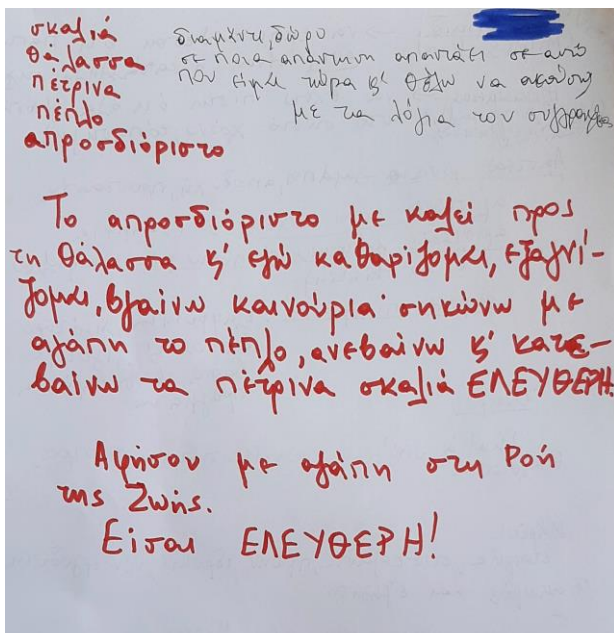 σκαλιά
θάλασσα
πέτρινα
πέπλο
απροσδιόριστο
διαμάντι, δώρο
σε ποια απάντηση απαντάει σε αυτό
που είμαι τώρα κ' θέλω να ακούσω
με τα λόγια του συγγραφέα
Το απροσδιόριστο με καλεί προς
τη θάλασσα κ' εγώ καθαρίζομαι, εξαγνί-
ζομαι, βγαίνω καινούρια· σηκώνω με
αγάπη το πέπλο, ανεβαίνω κ' κατε-
βαίνω τα πέτρινα σκαλιά ΕΛΕΥΘΕΡΗ!
Αφήσου με αγάπη στη Ροή
της Ζωής.
Είσαι ΕΛΕΥΘΕΡΗ!